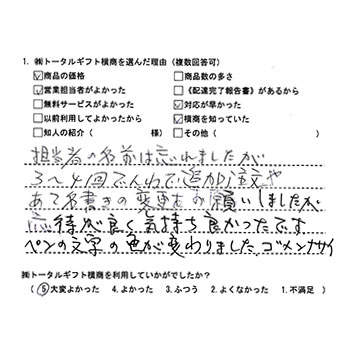 1. ㈱トータルギフト横商を選んだ理由（複数回答可）
☑商品の価格 □商品数の多さ
☑営業担当者がよかった □《配達完了報告書》があるから
□無料サービスがよかった ☑対応が早かった
□以前利用してよかったから ☑横商を知っていた
□知人の紹介（ 様） □その他（ ）
担当者の名前は忘れましたが
3〜4回でんわで追加注文や
あて名書きの変更をお願いしましたが
応待が良く気持ち良かったです
ペンの文字の色が変わりました。ゴメンナサイ
㈱トータルギフト横商を利用していかがでしたか？
（ ⑤大変よかった 4.よかった 3.ふつう 2.よくなかった 1.不満足 ）